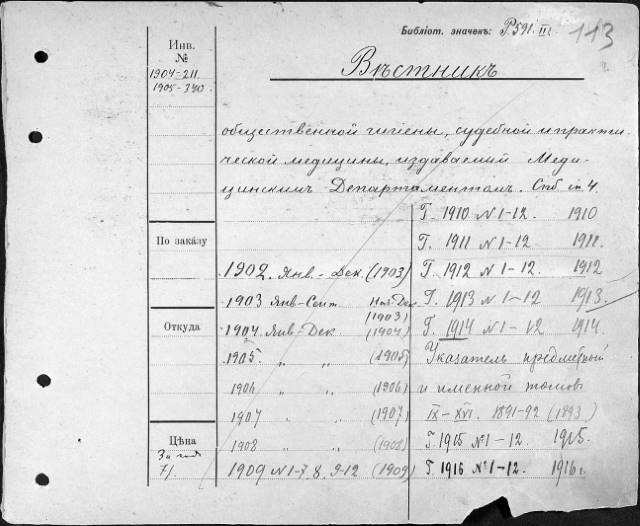 Библіот. значекъ: P591.III 113
Инв.
№
1904-211.
1905-340.
Вѣстникъ
общественной гигіены, судебной и практи-
ческой медицины, издаваемый Меди-
цинскимъ Департаментомъ. Спб in 4.
По заказу
Откуда
Цѣна
За год
7 1.
1902. Янв.-Дек. (1903)
1903 Янв-Сент Ноя-Дек
(1903)
1904 Янв-Дек (1904)
1905. „ „ (1905)
1906 „ „ (1906)
1907 „ „ (1907)
1908 „ „ (1908)
1909 N 1-7. 8. 9-12 (1909)
Г. 1910 N 1-12. 1910
Г. 1911 N 1-12. 1911.
Г. 1912 N 1-12. 1912
Г. 1913 N 1-12 1913.
Г. 1914 N 1-12 1914.
Указатель предметный
и именной томов
IX-XVI. 1891-92 (1893)
Г 1915 N 1-12. 1915.
Г. 1916 N 1-12. 1916 г.